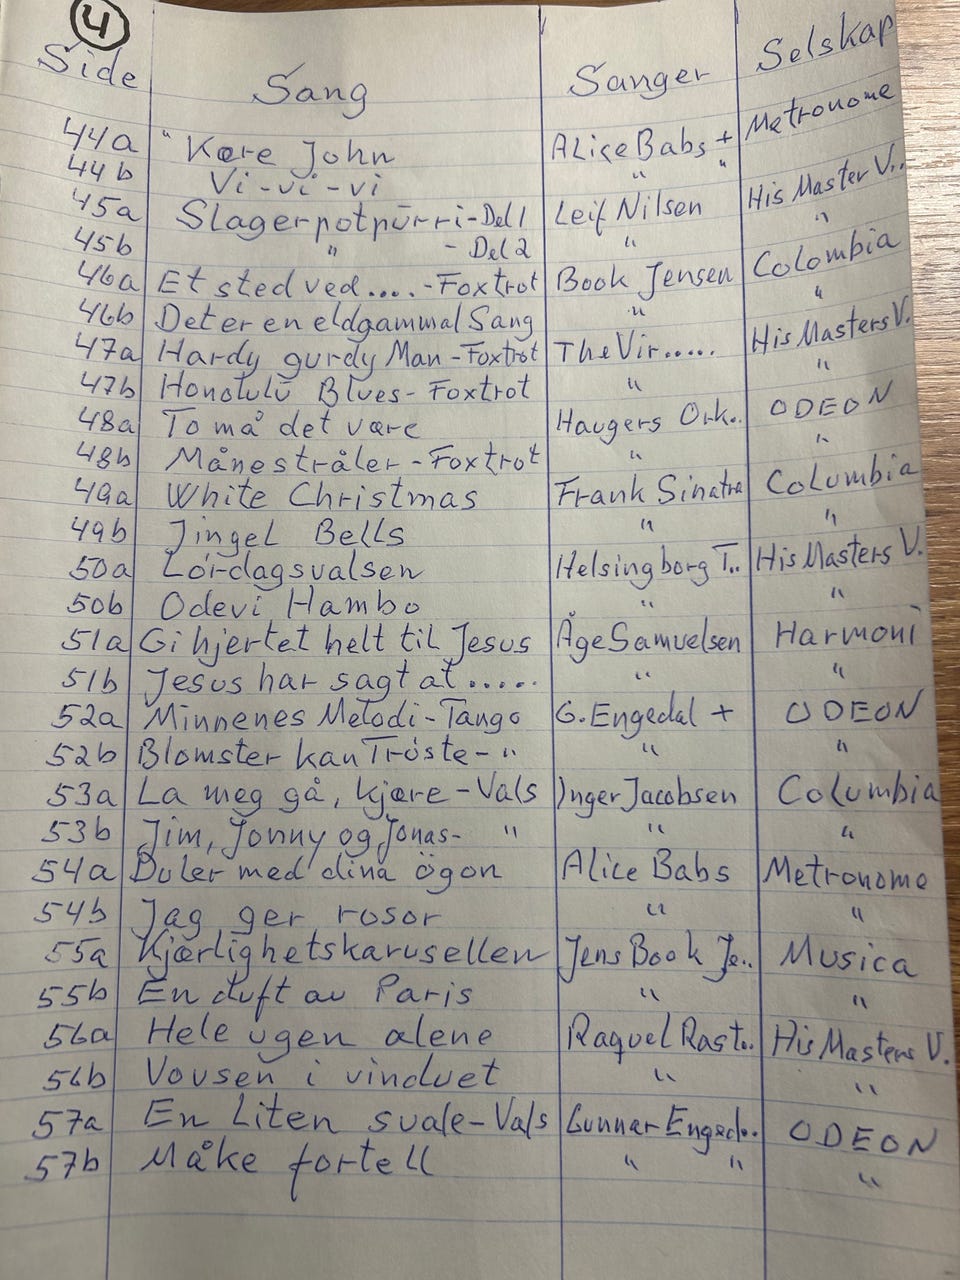 4
Side Sang Sanger Selskap
44a " Kære John Alice Babs + Metronome
44b Vi-vi-vi " "
45a Slagerpotpürri-Del 1 Leif Nilsen His Master V..
45b " - Del 2 " "
46a Et sted ved....-Foxtrot Book Jensen Colombia
46b Det er en eldgammal Sang " "
47a Hardy gurdy Man-Foxtrot The Vir..... His Masters V.
47b Honolulü Blues-Foxtrot " "
48a To må det være Haugers Ork.. ODEON
48b Månestråler-Foxtrot " "
49a White Christmas Frank Sinatra Columbia
49b Jingel Bells " "
50a Lördagsvalsen Helsingborg T.. His Masters V.
50b Odevi Hambo " "
51a Gi hjertet helt til Jesus Åge Samuelsen Harmoni
51b Jesus har sagt at..... " "
52a Minnenes Melodi-Tango G. Engedal + ODEON
52b Blomster kan Tröste- " " "
53a La meg gå, kjære-Vals Inger Jacobsen Columbia
53b Jim, Jonny og Jonas- " " "
54a Buler med dina ögon Alice Babs Metronome
54b Jag ger rosor " "
55a Kjærlighetskarusellen Jens Book Je.. Musica
55b En duft av Paris " "
56a Hele ugen alene Raquel Rast.. His Masters V.
56b Vovsen i vinduet " "
57a En Liten svale-Vals Gunnar Enged.. ODEON
57b Måke fortell " " "